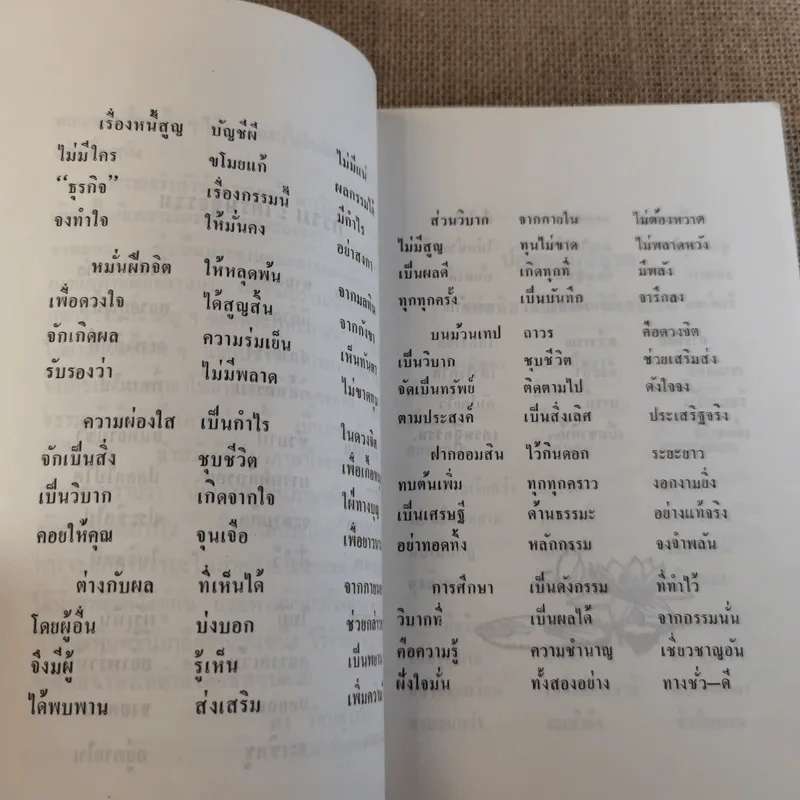 เรื่องหนี้สูญ บัญชีผี
ไม่มีใคร ขโมยแก้ ไม่มีแน่
“ธุรกิจ” เรื่องกรรมนี้ ผลกรรมได้
จงทำใจ ให้มั่นคง มีกำไร
อย่าสงกา
หมั่นฝึกจิต ให้หลุดพ้น
เพื่อดวงใจ ได้สูญสิ้น จากมลทิน
จักเกิดผล ความร่มเย็น จากกังขา
รับรองว่า ไม่มีพลาด เห็นทันตา
ไม่ขาดทุน
ความผ่องใส เป็นกำไร ในดวงจิต
จักเป็นสิ่ง ชุบชีวิต
เป็นวิบาก เกิดจากใจ ใฝ่ทางบุญ
คอยให้คุณ จุนเจือ
ต่างกับผล ที่เห็นได้
โดยผู้อื่น บ่งบอก
จึงมีผู้ รู้เห็น
ได้พบพาน ส่งเสริม
ส่วนวิบาก จากภายใน ไม่ต้องหวาด
ไม่มีสูญ ทุนไม่ขาด ไม่พลาดหวัง
เป็นผลดี เกิดทุกที่ มีพลัง
ทุกทุกครั้ง เป็นบันทึก จารึกลง
บนม้วนเทป ถาวร คือดวงจิต
เป็นวิบาก ชุบชีวิต ช่วยเสริมส่ง
จัดเป็นทรัพย์ ติดตามไป ดังใจจง
ตามประสงค์ เป็นสิ่งเลิศ ประเสริฐจริง
ฝากออมสิน ไว้กินดอก ระยะยาว
ทบต้นเพิ่ม ทุกทุกคราว งอกงามยิ่ง
เป็นเศรษฐี ด้านธรรมะ อย่างแท้จริง
อย่าทอดทิ้ง หลักกรรม จงจำพลัน
การศึกษา เป็นดังกรรม ที่ทำไว้
วิบากที่ เป็นผลได้ จากกรรมนั่น
คือความรู้ ความชำนาญ เชี่ยวชาญอัน
ฝังใจมั่น ทั้งสองอย่าง ทางชั่ว—ดี